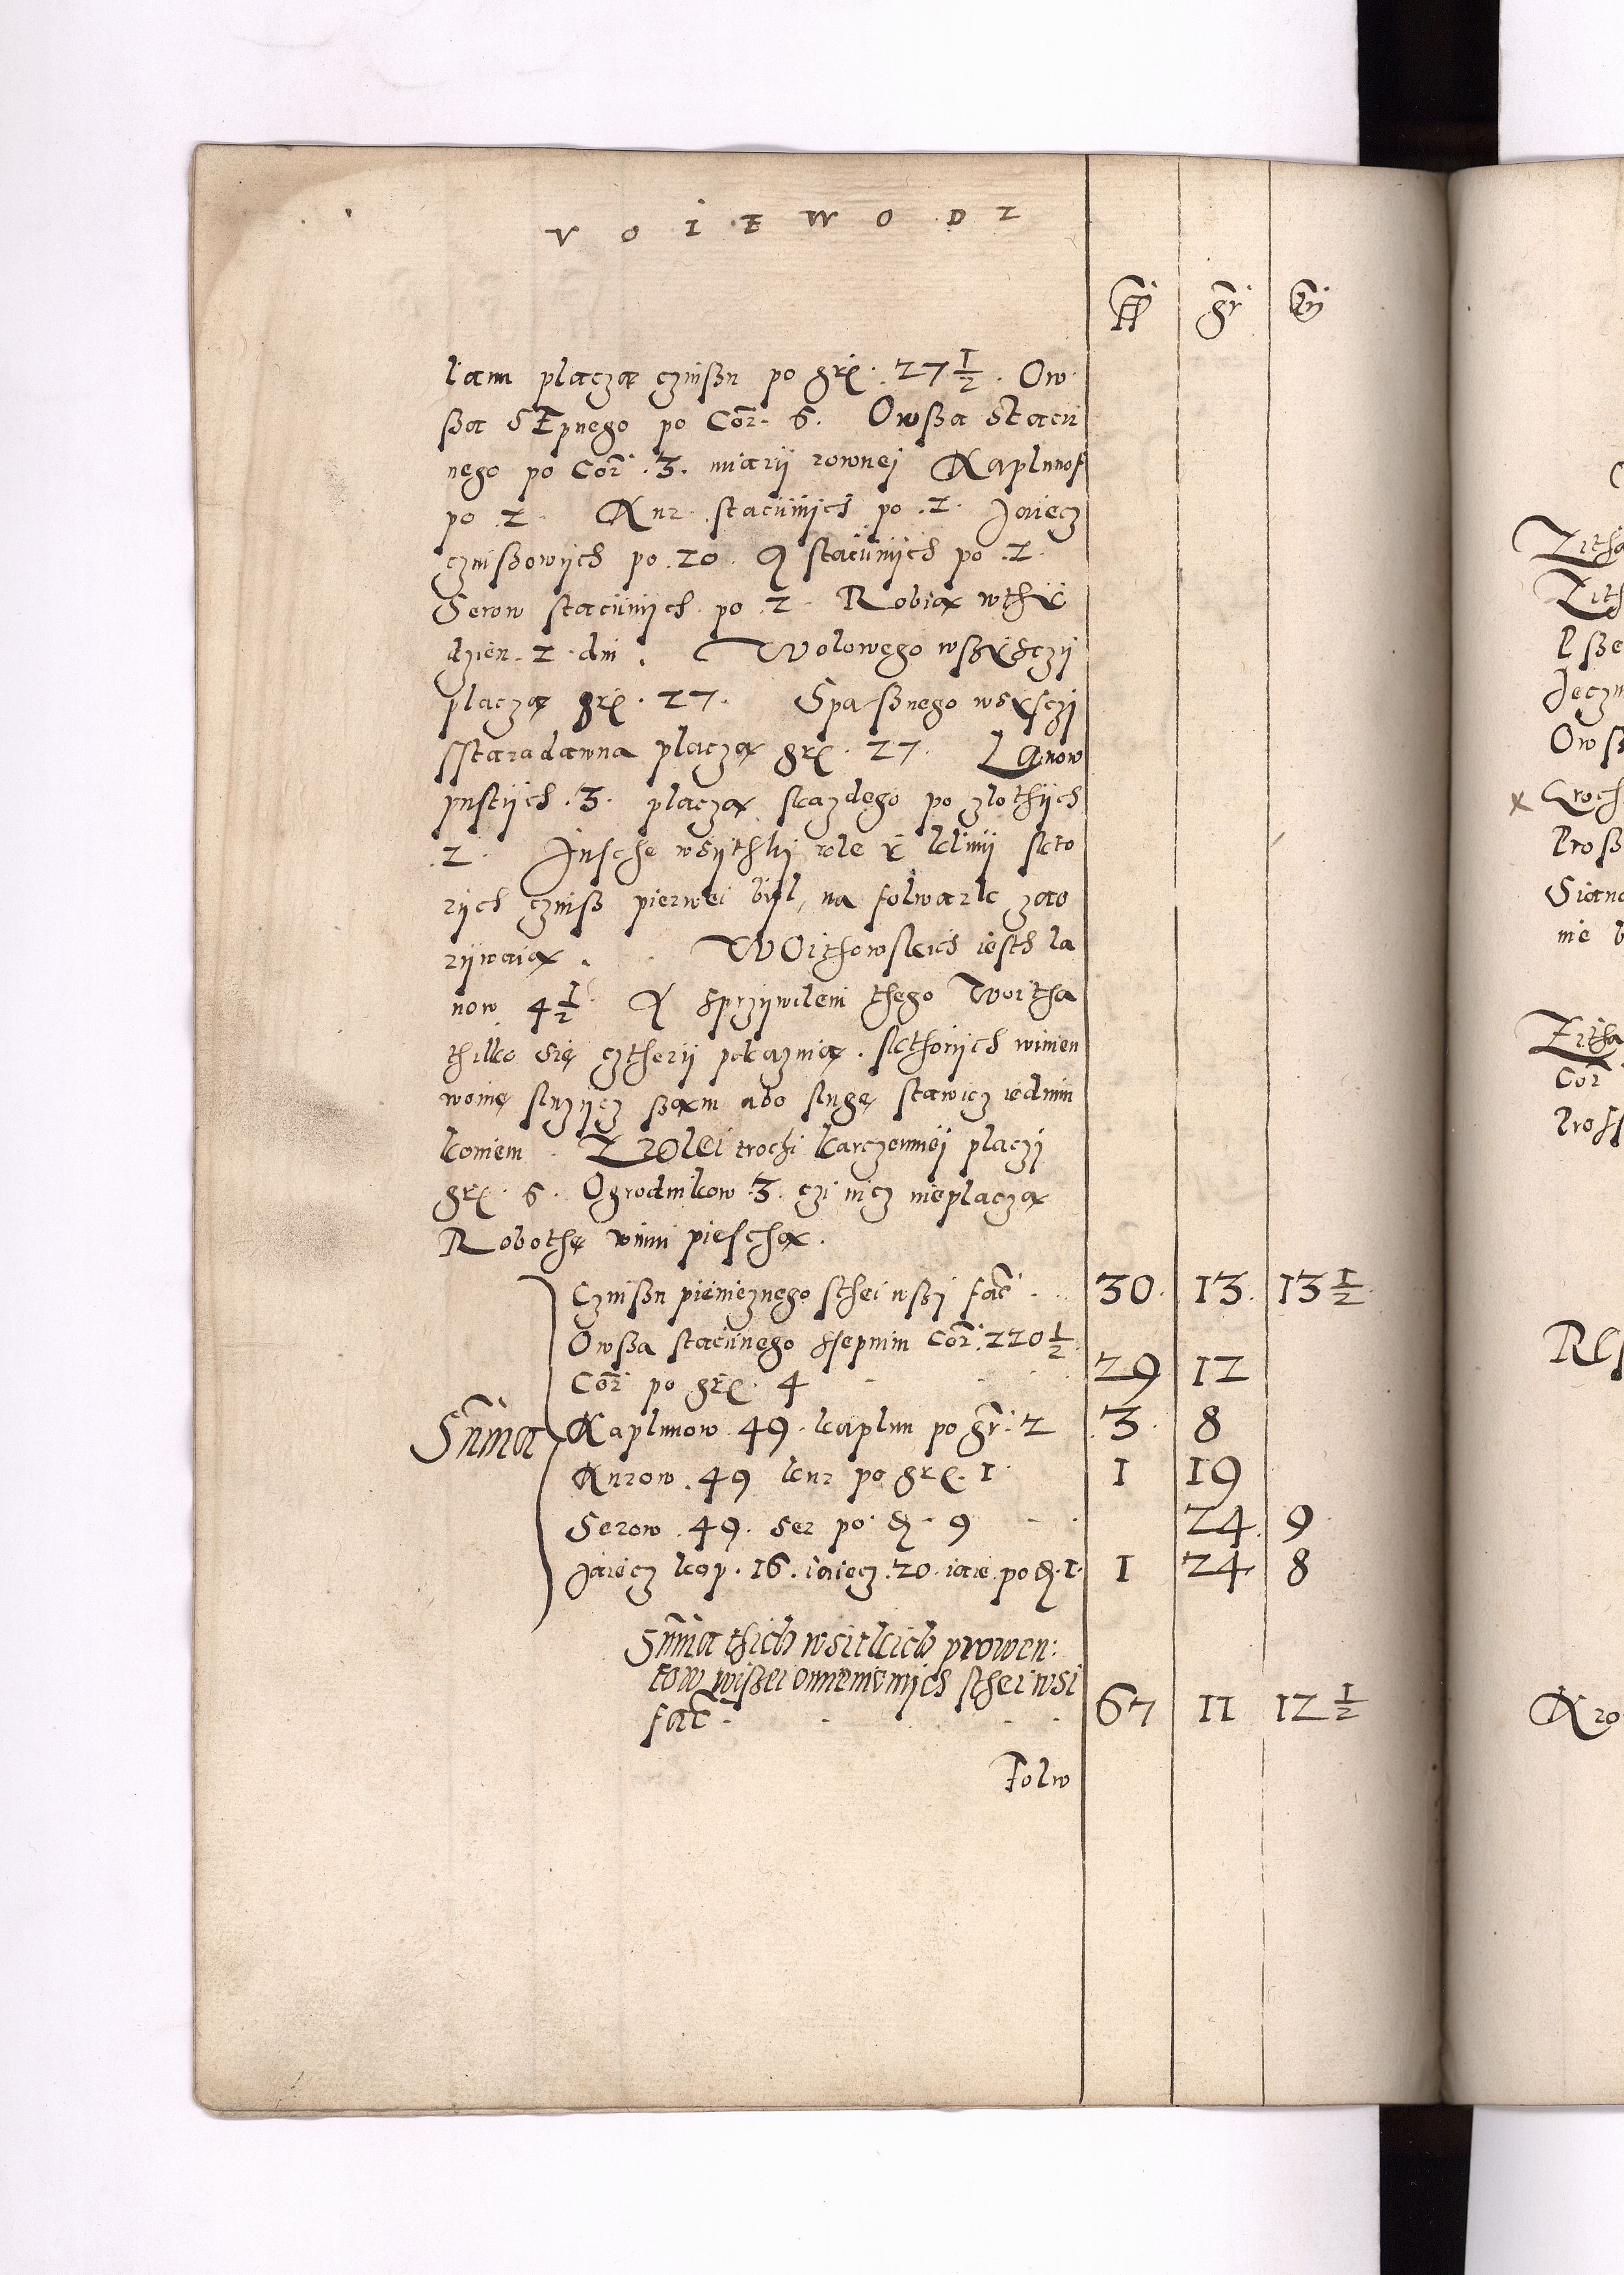 VOIEWODZ
ff gr d
łanu placzą czinßu po grę. 27 1/2. Ow
ßa SEpnego po Cor. 6. Owßa Stacii
nego po Cor. 3. miarij rownej Kaplunof
po 2. Kur staciinijch po .2. Jaiecz
czinßowijch po 20. Y staciinijch po .2.
Serow staciinijch po 2. Robią wthy
dzien .2. dni. Wolowego wßysczij
placzą grę. 27. Spaßnego wsysczij
Sstaradawna placzą grę. 27. Lanow
pustijch .3. placzą skazdego po zlothijch
2. Insche wsijthki role y klinij kto
rijch czinß pierwei bijl, na folwark zao
rijwaią. WOithowskich iesth la
now 4 1/2 A sprzijwilem thego Woitha
thilko się cztherij pokazuią. skthorijch winien
woinę sluzijcz ßam abo slugę stawicz iednim
koniem. Z rolei trochi karczemnej placzj
grę. 6. Ogrodnikow .3. czi nicz nieplaczą
Robothę winni pieschą.
Czinßu pienieznego sthei wßj fac. 30. 13. 13 1/2
Owßa staciinego Ssepnim Cor. 220 1/2
Cor. po grę. 4 29 12
Suma Kaplunow 49. kaplun po gr. 2 3. 8
Kurow .49 kur po grę. 1 1 19
Serow .49. Ser po d. 9 24. 9
Jaiecz kop. 16. iaiecz .20. iaie po d. 1. 1 24 8
Suma thich wsitkich prowen:
tow wißei omienionijch sthei wsi
fac. 67 11 12 1/2
Folw